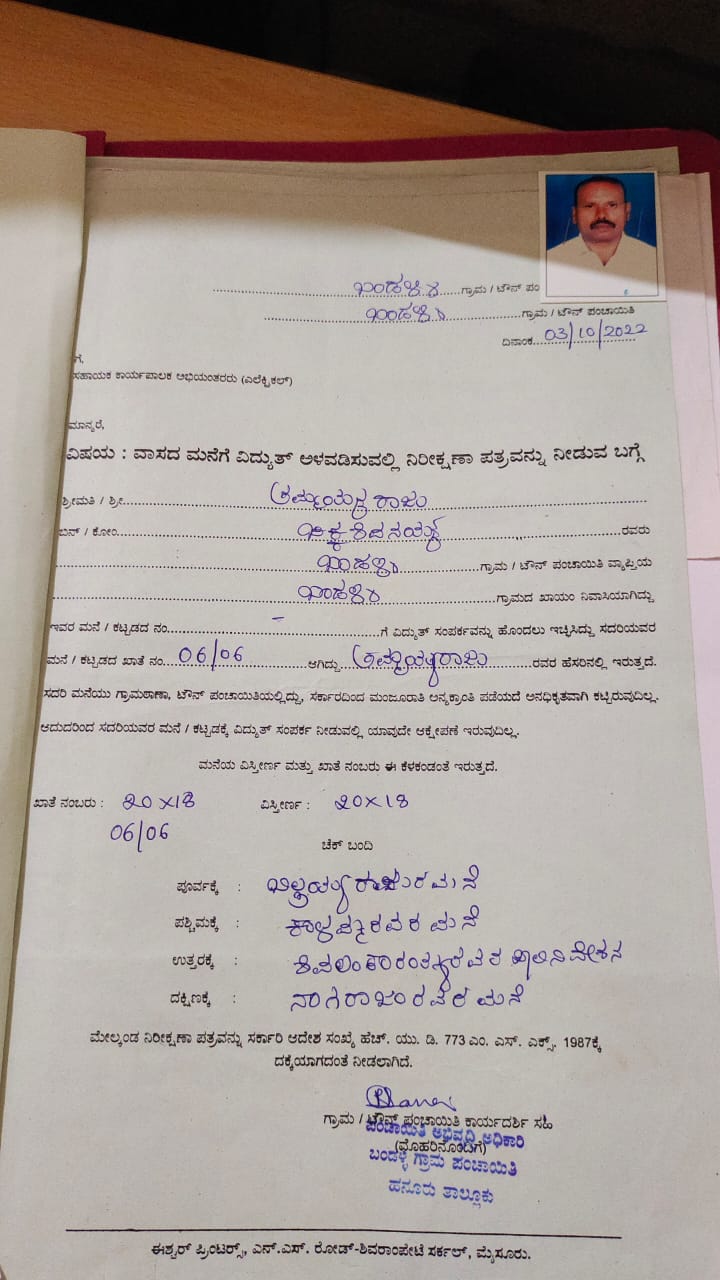 ಬಂಡಳ್ಳಿ ಗ್ರಾಮ / ಟೌನ್ ಪಂ
ಬಂಡಳ್ಳಿ ಗ್ರಾಮ / ಟೌನ್ ಪಂಚಾಯಿತಿ
ದಿನಾಂಕ 03/10/2022
ಗೆ,
ಸಹಾಯಕ ಕಾರ್ಯಪಾಲಕ ಅಭಿಯಂತರರು (ಎಲೆಕ್ಟ್ರಿಕಲ್)
ಮಾನ್ಯರೆ,
ವಿಷಯ : ವಾಸದ ಮನೆಗೆ ವಿದ್ಯುತ್ ಅಳವಡಿಸುವಲ್ಲಿ ನಿರೀಕ್ಷಣಾ ಪತ್ರವನ್ನು ನೀಡುವ ಬಗ್ಗೆ
ಶ್ರೀಮತಿ / ಶ್ರೀ. ರಾಜು
ಬಿನ್ / ಕೋಂ. ರವರು
ಬಂಡಳ್ಳಿ ಗ್ರಾಮ / ಟೌನ್ ಪಂಚಾಯಿತಿ ವ್ಯಾಪ್ತಿಯ
ಬಂಡಳ್ಳಿ ಗ್ರಾಮದ ಖಾಯಂ ನಿವಾಸಿಯಾಗಿದ್ದು
ಇವರ ಮನೆ / ಕಟ್ಟಡದ ನಂ. - ಗೆ ವಿದ್ಯುತ್ ಸಂಪರ್ಕವನ್ನು ಹೊಂದಲು ಇಚ್ಛಿಸಿದ್ದು ಸದರಿಯವರ
ಮನೆ / ಕಟ್ಟಡದ ಖಾತೆ ನಂ. 06/06 ಆಗಿದ್ದು ರವರ ಹೆಸರಿನಲ್ಲಿ ಇರುತ್ತದೆ.
ಸದರಿ ಮನೆಯು ಗ್ರಾಮಠಾಣಾ, ಟೌನ್ ಪಂಚಾಯಿತಿಯಲ್ಲಿದ್ದು, ಸರ್ಕಾರದಿಂದ ಮಂಜೂರಾತಿ ಅನ್ಯಕ್ರಾಂತಿ ಪಡೆಯದೆ ಅನಧಿಕೃತವಾಗಿ ಕಟ್ಟಿರುವುದಿಲ್ಲ.
ಆದುದರಿಂದ ಸದರಿಯವರ ಮನೆ / ಕಟ್ಟಡಕ್ಕೆ ವಿದ್ಯುತ್ ಸಂಪರ್ಕ ನೀಡುವಲ್ಲಿ ಯಾವುದೇ ಆಕ್ಷೇಪಣೆ ಇರುವುದಿಲ್ಲ.
ಮನೆಯ ವಿಸ್ತೀರ್ಣ ಮತ್ತು ಖಾತೆ ನಂಬರು ಈ ಕೆಳಕಂಡಂತೆ ಇರುತ್ತದೆ.
ಖಾತೆ ನಂಬರು : 20×18 ವಿಸ್ತೀರ್ಣ : 20×18
06/06
ಚೆಕ್ ಬಂದಿ
ಪೂರ್ವಕ್ಕೆ : ರವ ಮನೆ
ಪಶ್ಚಿಮಕ್ಕೆ : ರವರ ಮನೆ
ಉತ್ತರಕ್ಕೆ : ರವರ ಖಾಲಿ ನಿವೇಶನ
ದಕ್ಷಿಣಕ್ಕೆ : ನಾಗರಾಜು ರವರ ಮನೆ
ಮೇಲ್ಕಂಡ ನಿರೀಕ್ಷಣಾ ಪತ್ರವನ್ನು ಸರ್ಕಾರಿ ಆದೇಶ ಸಂಖ್ಯೆ ಹೆಚ್. ಯು. ಡಿ. 773 ಎಂ. ಎಸ್. ಎಕ್ಸ್. 1987ಕ್ಕೆ
ದಕ್ಕೆಯಾಗದಂತೆ ನೀಡಲಾಗಿದೆ.
ಗ್ರಾಮ / ಟೌನ್ ಪಂಚಾಯಿತಿ ಕಾರ್ಯದರ್ಶಿ ಸಹಿ
ಪಂಚಾಯಿತಿ ಅಭಿವೃದ್ಧಿ ಅಧಿಕಾರಿ
(ಮೊಹರಿನೊಂದಿಗೆ)
ಬಂಡಳ್ಳಿ ಗ್ರಾಮ ಪಂಚಾಯಿತಿ
ಹನೂರು ತಾಲ್ಲೂಕು
ಈಶ್ವರ್ ಪ್ರಿಂಟರ್ಸ್, ಎನ್.ಎಸ್. ರೋಡ್-ಶಿವರಾಂಪೇಟೆ ಸರ್ಕಲ್, ಮೈಸೂರು.